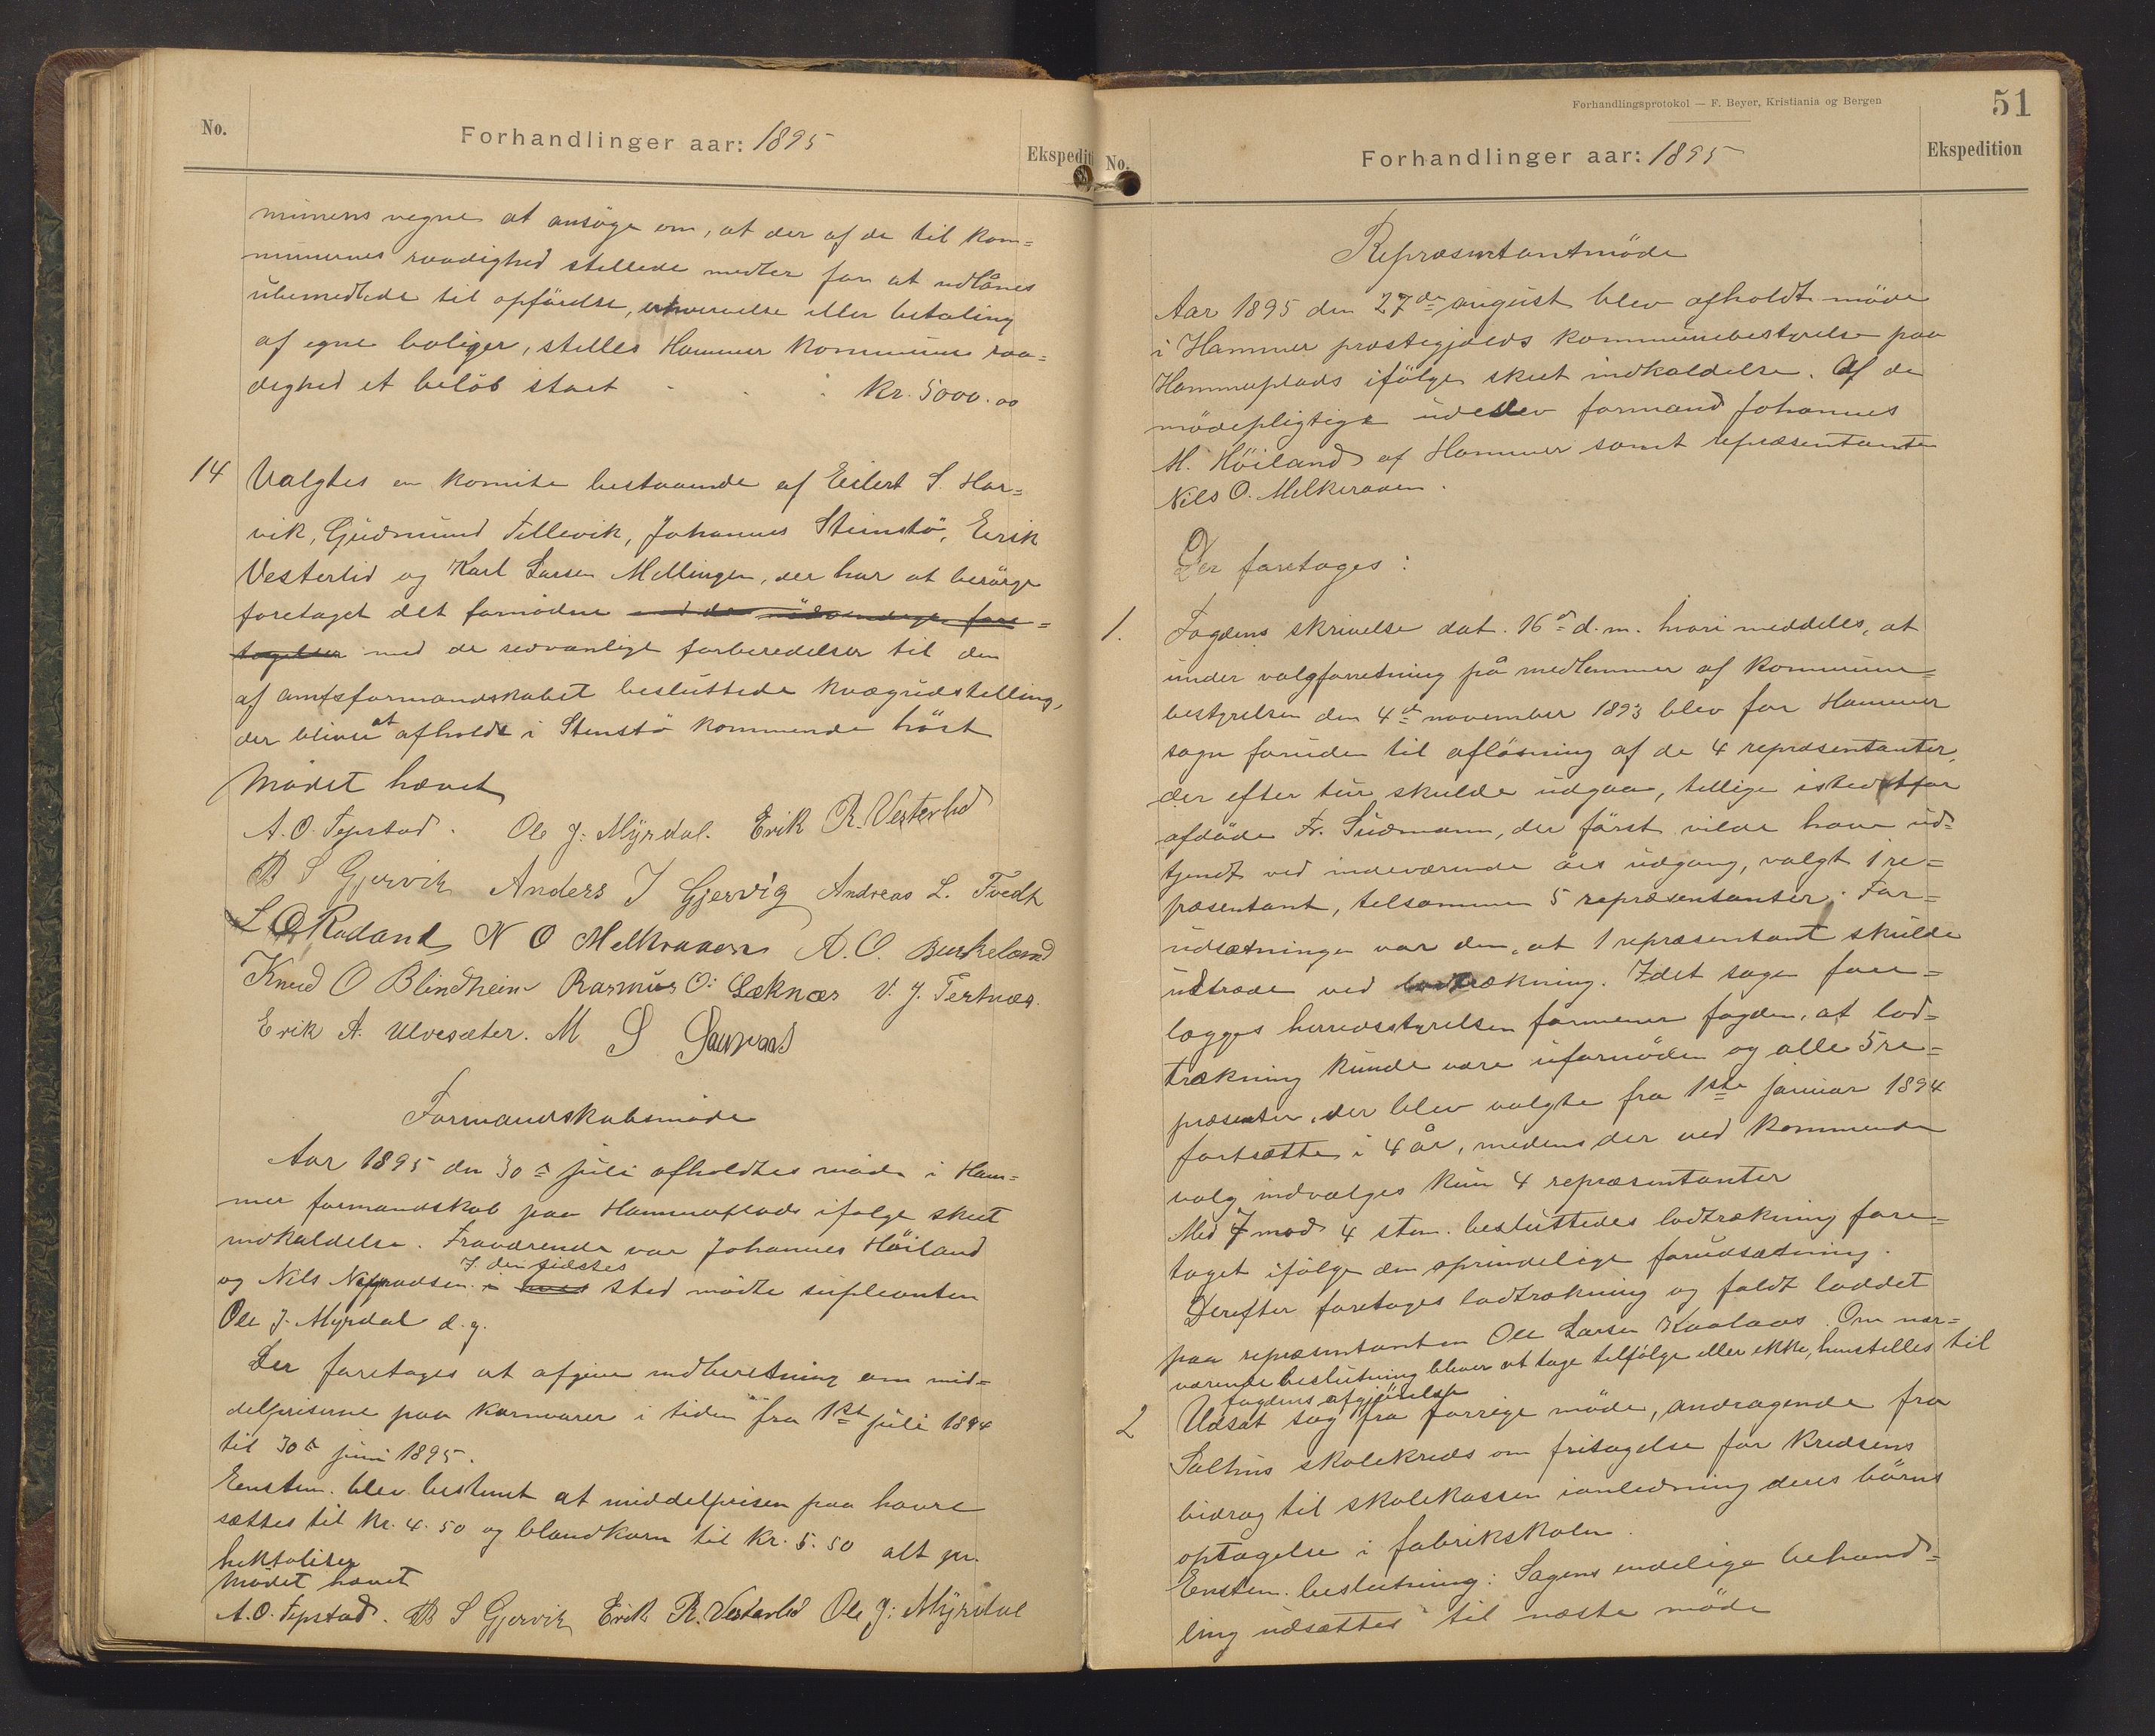 No.
Forhandlinger aar: 1895
Ekspediti
munens vegne at ansöge om, at der af de til kom=
munernes raadighed stellede medler for at udlånes
ubemedlede til opförelse, erhvervelse eller betaling
af egne boliger, stelles Hammer kommune raa=
dighed et belöb stort - - - kr. 5000.00
14 Valgtes en komite bestaaende af Eilert S. Har=
vik, Gudmund Tellevik, Johannes Steinstö, Eerik
Vesterlid og Karl Larsen Mellingen, der har at besörge
foretaget det fornödne med de nödvendige fore=
tagelser med de sedvanlige forberedelser til den
af amtsformandskabet besluttede kvægudstelling,
der bliver at afholde i Stenstö kommende höst
Mödet hævet
A. O. Tepstad. Ole J. Myrdal. Erik R. Vesterlid
B S Gjervik Anders J Gjervig Andreas L. Tvedt
L O Rødland N O Melkraaen A. O. Burkeland
Knud O Blindheim Rasmus O: Læknæs V. J. Tertnæs.
Erik A. Ulvesæter. M S
Formandskabsmöde
Aar 1895 den 30te juli afholdtes möde i Ham=
mer formandskab paa Hammerplads ifölge skeet
indkaldelse. Fraværende var Johannes Höiland
I den sidstes
og Nils i hvis sted mödte supleanten
Ole J. Myrdal d.y.
Der foretoges at afgive indberetning om mid=
delpriserne paa kornvarer i tiden fra 1ste juli 1894
til 30te juni 1895.
Eenstem. blev bestemt at middelprisen paa havre
sættes til kr. 4.50 og blandkorn til kr. 5.50 alt pr.
hektoliter
Mödet hævet
A. O. Tepstad. B S Gjervik Erik R. Vesterlid Ole J: Myrdal
Forhandlingsprotokol — F. Beyer, Kristiania og Bergen
51
No.
Forhandlinger aar: 1895
Ekspedition
Repræsentantmöde
Aar 1895 den 27de august blev afholdt möde
i Hammer præstegjælds kommunebestyrelse paa
Hammerplads ifölge skeet indkaldelse. Af de
mödepligtige udeblev formand Johannes
M. Höiland af Hammer samt repræsentanten
Nils O. Melkeraaen.
Der foretoges:
1. Fogdens skrivelse dat. 16de d.m. hvori meddeles, at
under valgforretning på medlemmer af kommune=
bestyrelsen den 4de november 1893 blev for Hammer
sogn foruden til aflösning af de 4 repræsentanter,
der efter tur skulde udgaa, tellige istedetfor
afdöde Fr. Sudmann, der först vilde have ud=
tjendt ved indeværende års udgang, valgt 1 re=
præsentant, telsammen 5 repræsentanter. For=
udsætningen var den, at 1 repræsentant skulde
udtræde ved lodtrækning. Idet sagen fore=
lægges herredsstyrelsen formener fogden, at lod=
trækning kunde være ufornöden og alle 5 re=
præsenter, der blev valgte fra 1ste januar 1894
fortsætte i 4 år, medens der ved kommende
valg indvælges kun 4 repræsentanter
Med 7 mod 4 stem. besluttedes lodtrækning fore=
taget ifölge den oprindelige forudsætning.
Derefter foretoges lodtrækning og faldt loddet
paa repræsentanten Ole Larsen Kvalaas. Om nær=
værende beslutning bliver at tage telfölge eller ikke, henstelles til
fogdens afgjörelse
2 Udsat sag fra forrige möde, andragende fra
Salhus skolekreds om fritagelse for kredsens
bidrag til skolekassen ianledning deres börns
optagelse i fabrikskolen.
Enstem. beslutning: Sagens endelige behand=
ling udsættes til næste möde